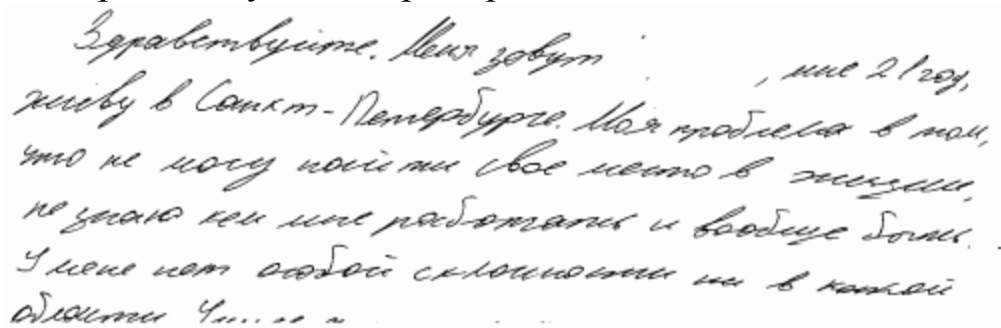 Здравствуйте. Меня зовут , мне 21 год,
живу в Санкт-Петербурге. Моя проблема в том,
что не могу найти свое место в жизни,
не знаю кем мне работать и вообще быть.
У меня нет особой склонности ни в какой
области